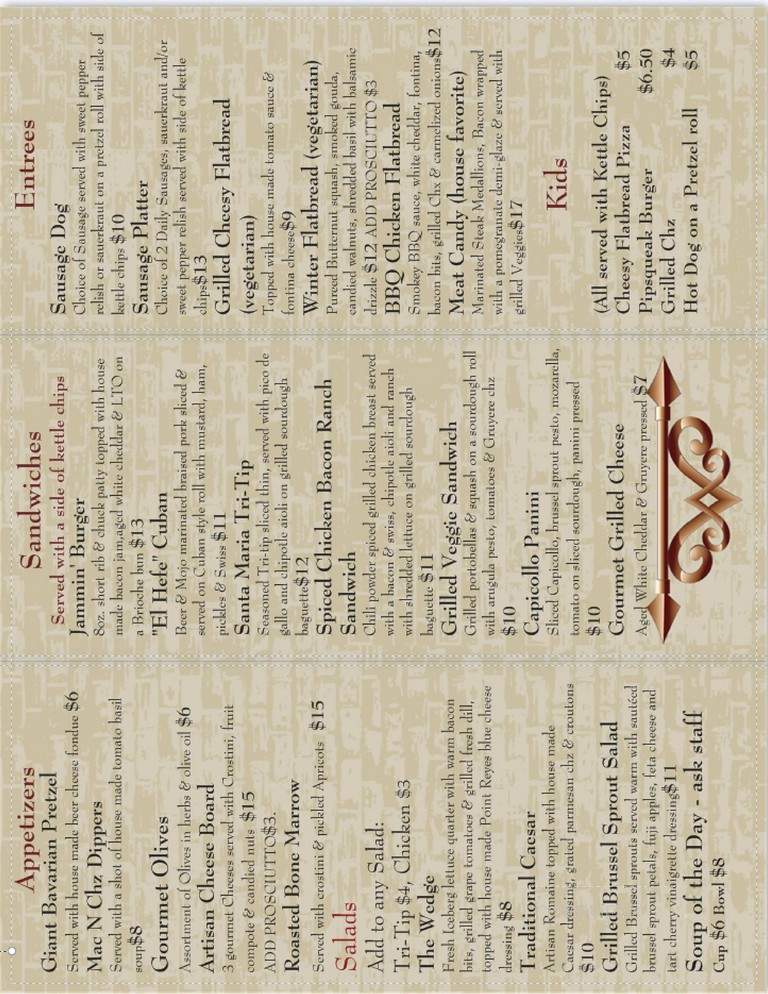 Appetizers
Giant Bavarian Pretzel
Served with house made beer cheese fondue $6
Mac N Chz Dippers
Served with a shot of house made tomato basil
soup$8
Gourmet Olives
Assortment of Olives in herbs & olive oil $6
Artisan Cheese Board
3 gourmet Cheeses served with Crostini, fruit
compote & candied nuts $15
ADD PROSCIUTTO$3.
Roasted Bone Marrow
Served with crostini & pickled Apricots $15
Salads
Add to any Salad:
Tri-Tip $4, Chicken $3
The Wedge
Fresh Iceberg lettuce quarter with warm bacon
bits, grilled grape tomatoes & grilled fresh dill,
topped with house made Point Reyes blue cheese
dressing $8
Traditional Caesar
Artisan Romaine topped with house made
Caesar dressing, grated parmesan chz & croutons
$10
Grilled Brussel Sprout Salad
Grilled Brussel sprouts served warm with sautéed
brussel sprout petals, fuji apples, feta cheese and
tart cherry vinaigrette dressing$11
Soup of the Day - ask staff
Cup $6 Bowl $8
Sandwiches
Served with a side of kettle chips
Jammin' Burger
8oz. short rib & chuck patty topped with house
made bacon jam,aged white cheddar & LTO on
a Brioche bun $13
"El Hefe" Cuban
Beer & Mojo marinated braised pork sliced &
served on Cuban style roll with mustard, ham,
pickles & Swiss $11
Santa Maria Tri-Tip
Seasoned Tri-tip sliced thin, served with pico de
gallo and chipotle aioli on grilled sourdough
baguette$12
Spiced Chicken Bacon Ranch
Sandwich
Chili powder spiced grilled chicken breast served
with a bacon & swiss, chipotle aioli and ranch
with shredded lettuce on grilled sourdough
baguette $11
Grilled Veggie Sandwich
Grilled portobellas & squash on a sourdough roll
with arugula pesto, tomatoes & Gruyere chz
$10
Capicollo Panini
Sliced Capicollo, brussel sprout pesto, mozarella,
tomato on sliced sourdough, panini pressed
$10
Gourmet Grilled Cheese
Aged White Cheddar & Gruyere pressed $7
Entrees
Sausage Dog
Choice of Sausage served with sweet pepper
relish or sauerkraut on a pretzel roll with side of
kettle chips $10
Sausage Platter
Choice of 2 Daily Sausages, sauerkraut and/or
sweet pepper relish served with side of kettle
chips$13
Grilled Cheesy Flatbread
(vegetarian)
Topped with house made tomato sauce &
fontina cheese$9
Winter Flatbread (vegetarian)
Pureed Butternut squash, smoked gouda,
candied walnuts, shredded basil with balsamic
drizzle $12 ADD PROSCIUTTO $3
BBQ Chicken Flatbread
Smokey BBQ sauce, white cheddar, fontina,
bacon bits, grilled Chx & carmelized onions$12
Meat Candy (house favorite)
Marinated Steak Medallions, Bacon wrapped
with a pomegranate demi-glaze & served with
grilled Veggies$17
Kids
(All served with Kettle Chips)
Cheesy Flatbread Pizza $5
Pipsqueak Burger $6.50
Grilled Chz $4
Hot Dog on a Pretzel roll $5